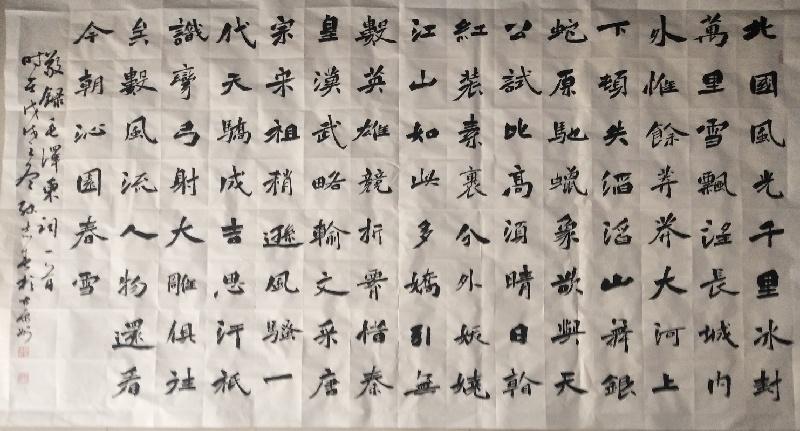 北國風光千里冰封
萬里雪飄望長城内
外惟餘莽莽大河上
下頓失滔滔山舞銀
蛇原馳蠟象欲與天
公試比高須晴日看
紅裝素裹分外妖嬈
江山如此多嬌引無
數英雄競折腰惜秦
皇漢武略輸文采唐
宗宋祖稍遜風騷一
代天驕成吉思汗祇
識彎弓射大雕俱往
矣數風流人物還看
今朝沁園春雪
敬録毛澤東詞一首
時在戊戌之冬